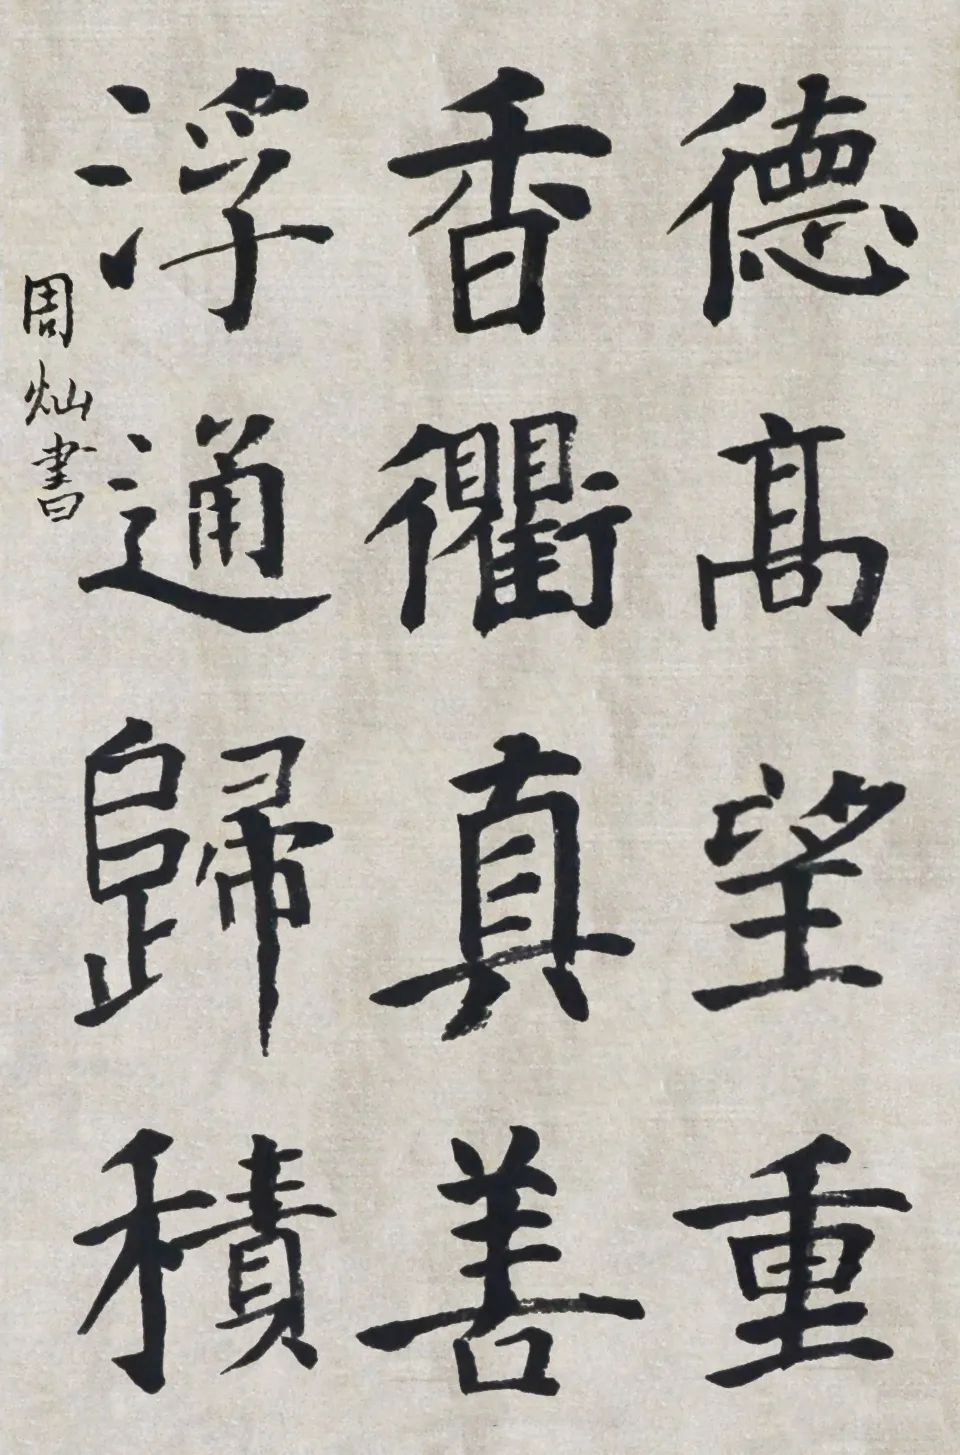 德髙望重
香衢真善
浮通歸積
周灿書